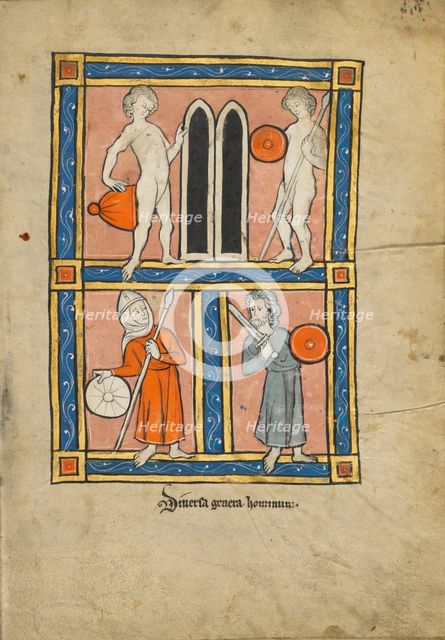 Heritage Heritage
Heritage Heritage
Heritage Heritage
Heritage Heritage
Diuersa genera hominum.